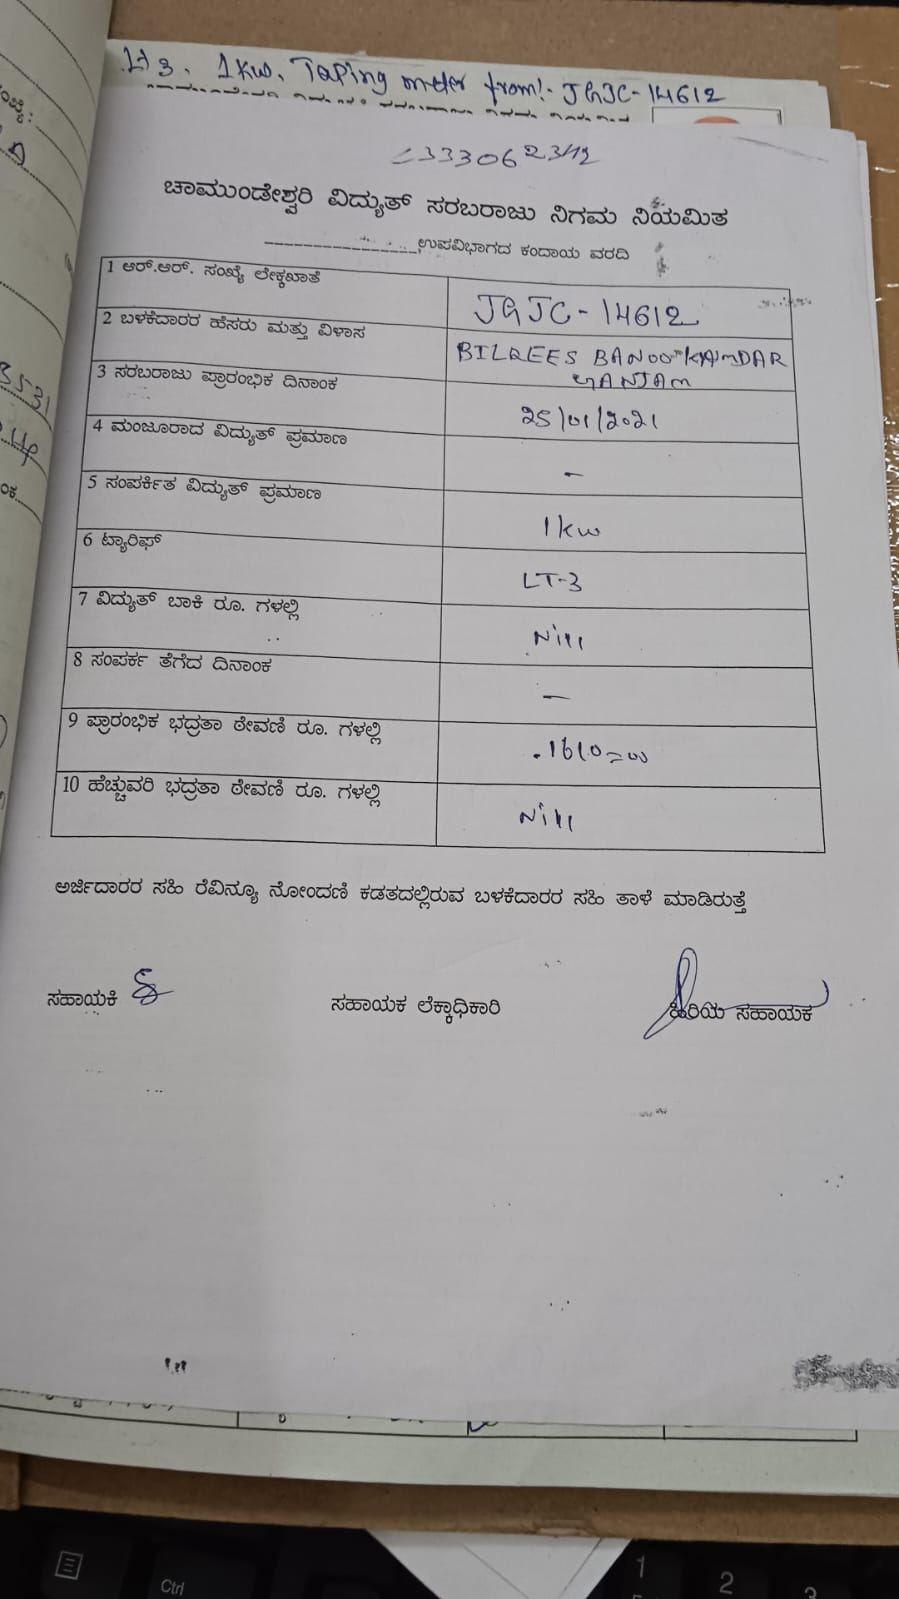 Lt 3. 1 Kw. Taping meter from:- JGJC-14612
ಚಾಮುಂಡೇಶ್ವರಿ ವಿದ್ಯುತ್ ಸರಬರಾಜು ನಿಗಮ ನಿಯಮಿತ
ಉಪವಿಭಾಗದ ಕಂದಾಯ ವರದಿ
1 ಆರ್.ಆರ್. ಸಂಖ್ಯೆ ಲೇಕ್ಕಖಾತೆ JGJC-14612
2 ಬಳಕೆದಾರರ ಹೆಸರು ಮತ್ತು ವಿಳಾಸ BILQEES BANOO KAMDAR
GANJAM
3 ಸರಬರಾಜು ಪ್ರಾರಂಭಿಕ ದಿನಾಂಕ 25/01/2021
4 ಮಂಜೂರಾದ ವಿದ್ಯುತ್ ಪ್ರಮಾಣ -
5 ಸಂಪರ್ಕಿತ ವಿದ್ಯುತ್ ಪ್ರಮಾಣ 1 kw
6 ಟ್ಯಾರಿಫ್ LT-3
7 ವಿದ್ಯುತ್ ಬಾಕಿ ರೂ. ಗಳಲ್ಲಿ Nill
8 ಸಂಪರ್ಕ ತೆಗೆದ ದಿನಾಂಕ -
9 ಪ್ರಾರಂಭಿಕ ಭದ್ರತಾ ಠೇವಣಿ ರೂ. ಗಳಲ್ಲಿ 1610=00
10 ಹೆಚ್ಚುವರಿ ಭದ್ರತಾ ಠೇವಣಿ ರೂ. ಗಳಲ್ಲಿ Nill
ಅರ್ಜಿದಾರರ ಸಹಿ ರೆವಿನ್ಯೂ ನೋಂದಣಿ ಕಡತದಲ್ಲಿರುವ ಬಳಕೆದಾರರ ಸಹಿ ತಾಳೆ ಮಾಡಿರುತ್ತೆ
ಸಹಾಯಕಿ ಸಹಾಯಕ ಲೆಕ್ಕಾಧಿಕಾರಿ ಹಿರಿಯ ಸಹಾಯಕ
Ctrl
1
2
3